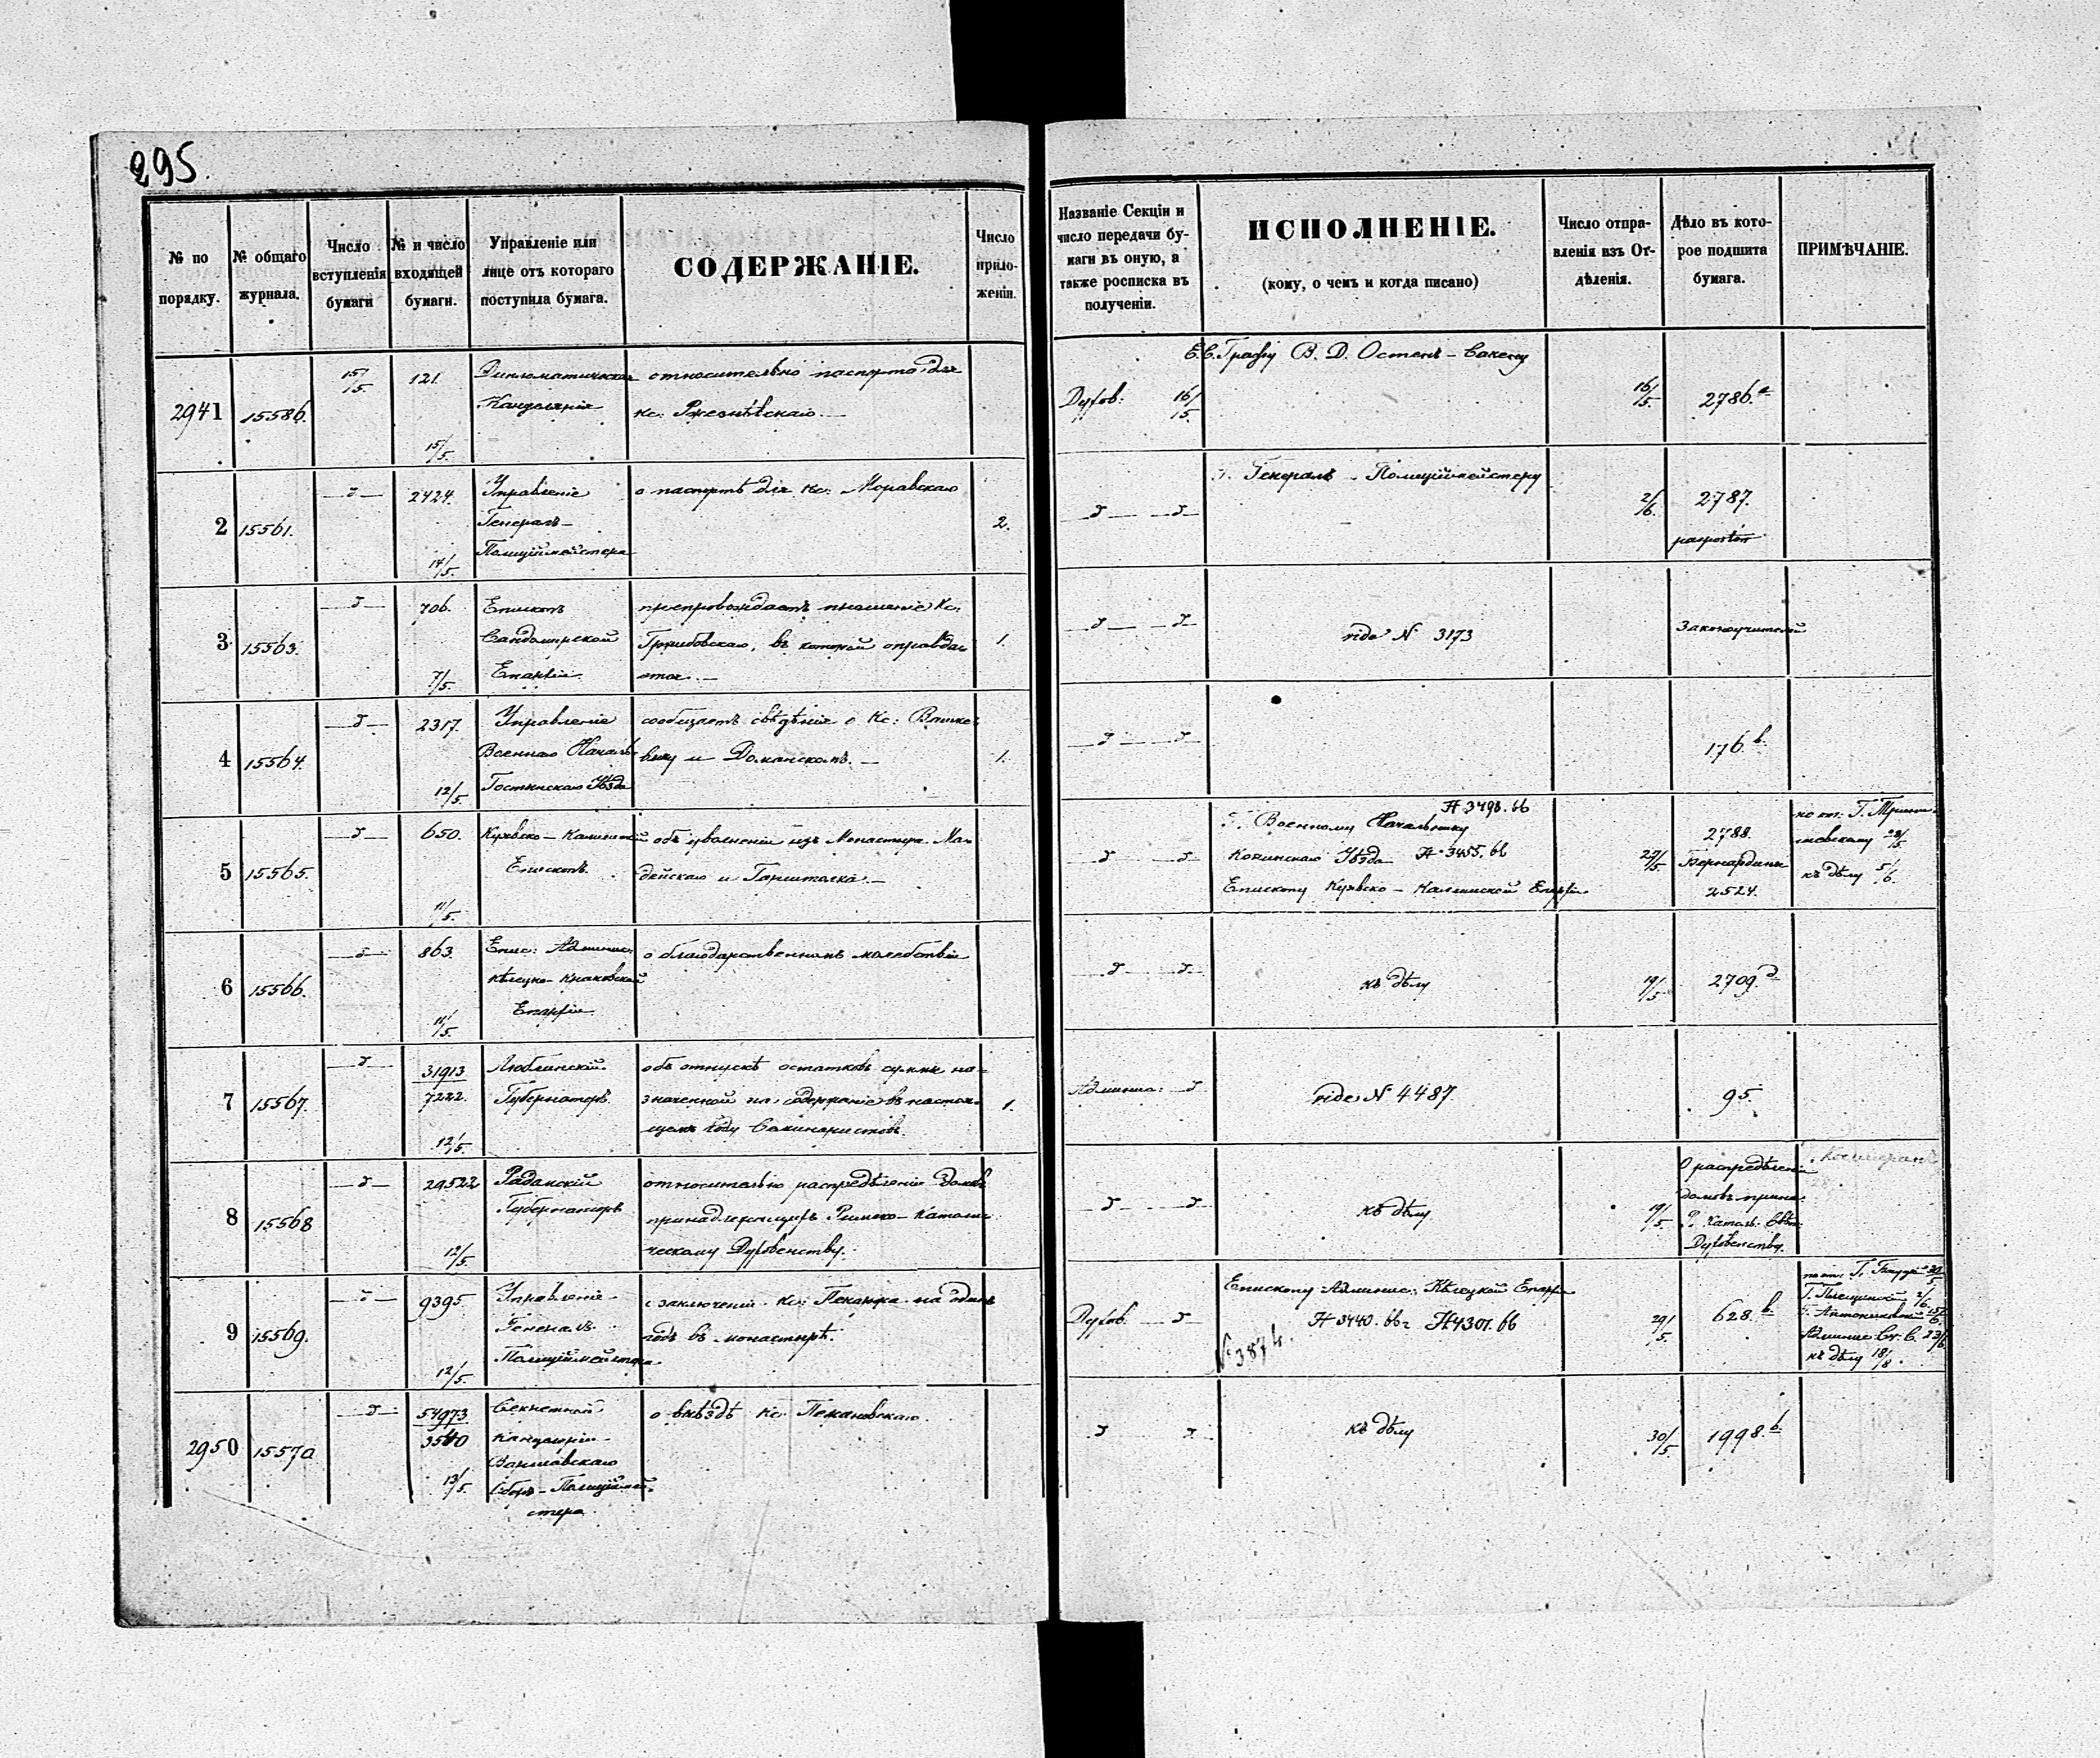 295.
№ по порядку.
№ общаго журнала.
Число вступленія бумаги
№ и число входящей бумаги.
Управленіе или лице отъ котораго поступила бумага.
СОДЕРЖАНІЕ.
Число приложеніи.
Названіе Секціи и число передачи бумаги въ оную, а также росписка въ полученіи.
ИСПОЛНЕНІЕ.
(кому, о чемъ и когда писано)
Число отправленія изъ Отдѣленія.
Дѣло въ которое подшита бумага.
ПРИМѢЧАНІЕ.
2941 15586. 15/5 121. 15/5.
Дипломатическая
Канцелярія
относительно паспорта для
кс:
Духов: 16/5.
Е.С. Графу В. Д. Остенъ-Сакену
16/5. 2786.a
2 15561. 2424. 14/5.
Управленіе
Генералъ-
Полиціймейстера
о паспортѣ для Кс: Моравскаго
2.
Г. Генералъ-Полиціймейстеру
2/6. 2787.
3 15563. 706. 7/5.
Епископъ
Сандомирской
Епархіи
препровождаетъ прошеніе Кс:
Гржибовскаго, въ которой оправдае
1.
vide N 3173
Законоучителей
4 15564. 2317. 12/5.
Управленіе
Военнаго Началь
Гостинскаго Уѣзда
сообщаетъ свѣдѣніе о Кс:
и Доманскомъ.
1.
176.b.
5 15565. 650. 11/5.
Куявско-Калишскій
Епископъ.
объ уволненіи изъ Монастыря
и
№ 3498.66
Г. Военному Начальнику
Конинскаго Уѣзда № 3455.66
Епископу Куявско-Калишской Епархіи
27/5. 2788.
Бернардины
2524.
28/5.
къ дѣлу 5/6.
6 15566. 863. 11/5.
Епис: Админис:
Кѣлецко-Краковской
Епархіи
о благодарственномъ молебствіи
къ дѣлу
19/5. 2709.d
7 15567. 31913 7222. 12/5.
Люблинскій
Губернаторъ
объ отпускѣ остатковъ суммы на-
значенной на содержаніе въ настоя-
щемъ году Семинаристовъ.
1.
Админис: vide N 4487
95.
8 15568 29522 12/5.
Радомскій
Губернаторъ
относительно распредѣленіе домовъ
принадлежащихъ Римско-Католи
ческому Духовенству.
къ дѣлу
19/5.
О распредѣленіи
домовъ прина:
Р. Катол:
Духовенству.
9 15569. 9395. 12/5.
Управленіе
Генералъ
Полиціймейстера
о заключеніи Кс: на одинъ
годъ въ монастырѣ.
Духов.
Епископу Админис: Кѣлецкой Епархіи
№ 3440.66 № 4301.66
№ 3874.
29/5 628.b.
къ дѣлу 18/8.
2950 15570 54973 3540 13/5.
Секретной
Канцеляріи
Варшавскаго
Оберъ-Полиціймей-
стера
о въѣздѣ Кс:
къ дѣлу
30/5. 1998.b.